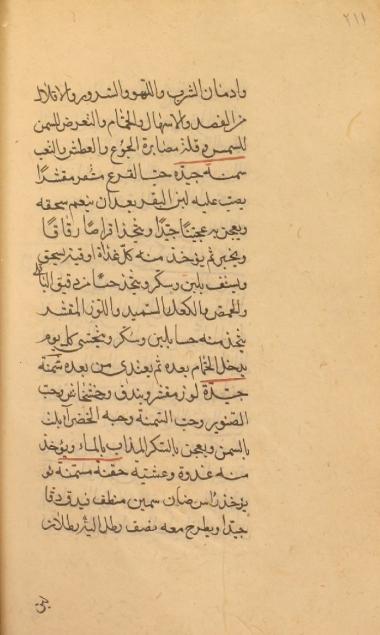 ٢١١
وادمان الشرب واللهو والسرور والاقلال
من الفصد والاسهال والحمام والتعرض للسمن
للسموم وقلة مصابرة الجوع والعطش والتعب
سمنة جيدة حب القرع مقشر مقشدا
يصب عليه لبن البقر بعد ان ينعم سحقه
ويعجن به عجينا جيدا ويتخذ اقراصا رقاقا
ويخبز ثم يؤخذ منه كل غداة اوقية يسحق
ويستف بلبن وسكر ويتخذ حسا من دقيق الباقلى
والحمص والكعك السميد واللوز المقشر
يتخذ منه حسا بلبن وسكر ويتحسى كل يوم
يدخل الحمام بعده ثم يغتدى من بعده سمنة
جيدة لوز مقشر وبندق وخشخاش وحب
الصنوبر وحب السمنة وحبه الخضرا يلت
بالسمن ويعجن بالسكر المذاب بالماء ويؤخذ
منه غدوة وعشية حقنة مسمنة
يؤخذ راس ضان سمين منظف فيدق دقا
جيدا ويطرح معه نصف رطل الية رطلان